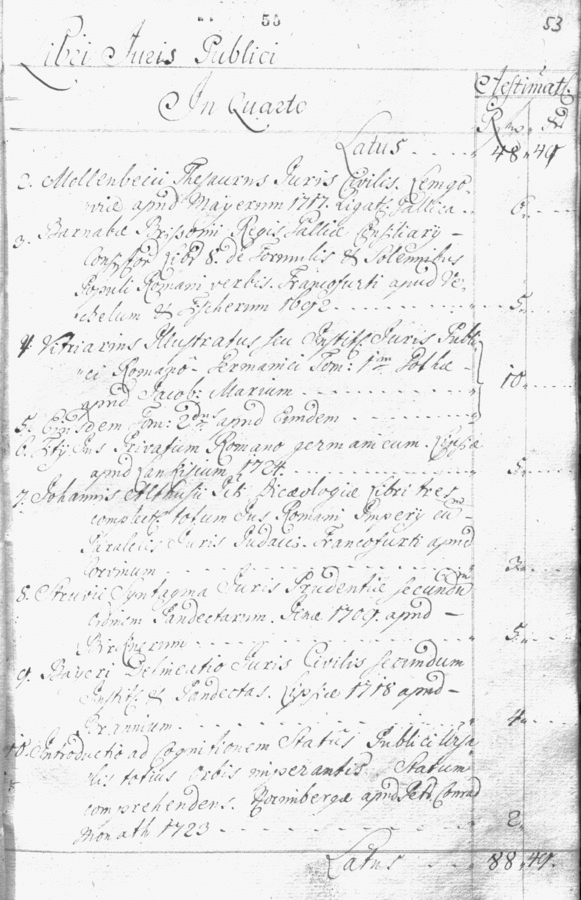 55
53
Libri Juris Publici
In Quarto
Aestimatio
Latus 48 49
2. Mollenbecii Thesaurus Juris Civilis. Lemgo-
viæ apud Mayerum 1717. Ligat: Gallica 6
3. Barnabæ Brissonii Regis Galliæ
Libri 8. de Formulis & Solennibus
Populi Romani verbis. Francofurti apud We-
chelum & Fischerum 1592 5
4. Vitriarius Illustratus seu Instit: Juris Publi-
ci Romano - Germanici Tom: 1. Gothæ -
apud Jacob: Marium 10
5. Ejusdem Tom: 2 apud Eundem
6. Jus Privatum Romano germanicum. Lipsiæ
apud Lankisium 1724 5
7. Johannis Althusii Dicæologiæ Libri tres
complect: totum Jus Romani Imperij
Juris Judaici. Francofurti apud
3
8. Struvii Syntagma Juris Prudentiæ secundum
ordinem Pandectarum. Jenæ 1709. apud -
5
9. Bayeri Delineatio Juris Civilis secundum
Instit: & Pandectas. Lipsiæ 1718 apud -
Braunium 4
10. Introductio ad cognitionem Status Publici
totius orbis imperantis Statum
comprehendens. Normbergæ apud Petr: Conrad
Monath 1723 2
Latus 88 49